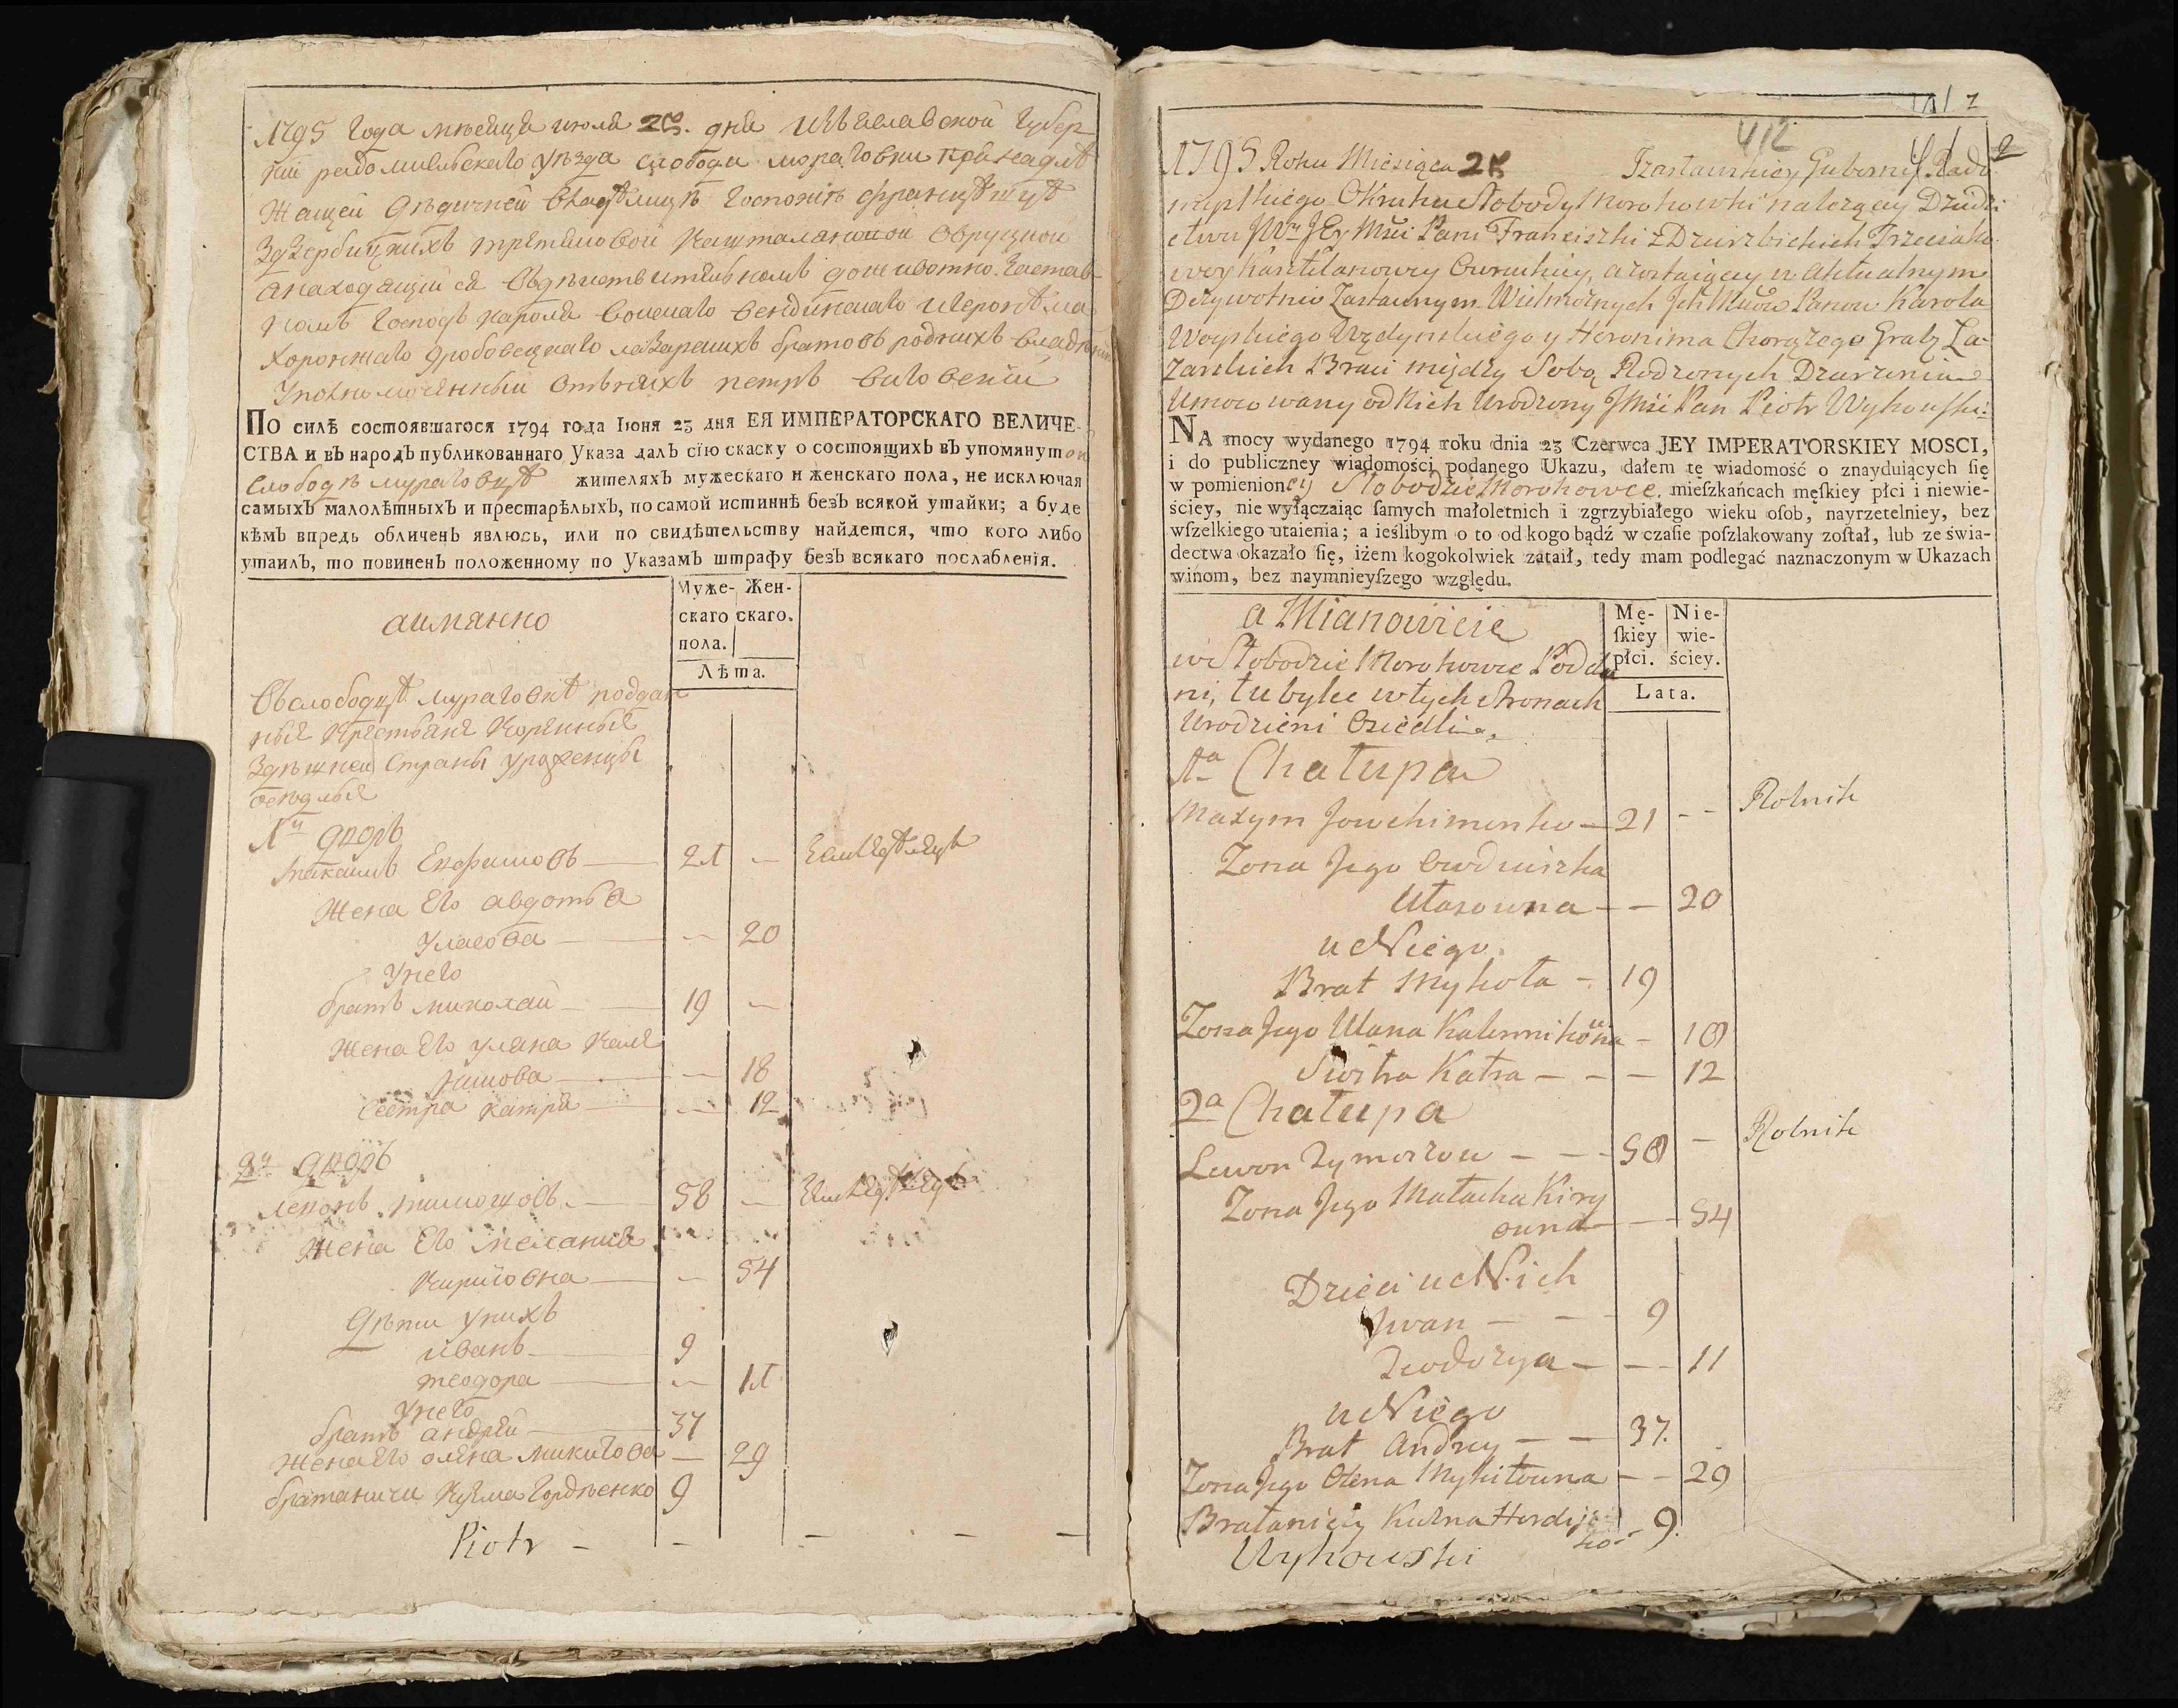 1795 года мѣсяца июля 28. дня Изъяславской Губер
нии радомысльскаго уѣзда слободы мораговки принадле
жащей дѣдичней владѣлицѣ Госпожѣ францишке
Здзербицкихъ третяковой каштеляновой Овруцкой
анаходящийся въдѣйствителномъ доживотно-застав
номъ Господъ кароля войскаго вендинскаго иеронима
Хоронжаго лазарскихъ братовъ родныхъ владѣнии
Уполномоченный отънихъ петръ виговский
По силѣ состоявшагося 1794 года Іюня 23 дня ЕЯ ИМПЕРАТОРСКАГО ВЕЛИЧЕ-
СТВА и въ народъ публикованнаго Указа далъ сію скаску о состоящихъ въ упомянутой
слободѣ мураговце жителяхъ мужескаго и женскаго пола, не исключая
самыхъ малолѣтныхъ и престарѣлыхъ, по самой истиннѣ безъ всякой утайки; а буде
кѣмъ впредь обличенъ явлюсь, или по свидѣтельству найдется, что кого либо
утаилъ, то повиненъ положенному по Указамъ штрафу безъ всякаго послабленія.
аимянно
Муже- Жен-
скаго скаго.
пола.
Лѣта.
Въслободце мураговке поддан
ные крестьяне коренные
Здѣшней Страны уроженцы
оседлые
1й дворъ
Максимъ Ехфимовъ 21 —
Жена Его авдотья
Уласова — 20
Унего
братъ миколай 19 —
Жена Его уляна Кале
никова — 18
Сестра катря — 12
2й дворъ
Левонъ тимошовъ 58 —
Жена Его мелания
Кириовна — 54
Дѣти унихъ
иванъ 9
теодора — 11
Унего
братъ андрей 37
Жена Его олена микитова — 29
братаничи Кузма Гордѣенко 9
Piotr - - - - -
412
2
1795 Roku Miesiąca 28 Izasławskiey Gubernij Rado
mysłskiego Okruhu Słobody Morohowki należącey Dziedzi
ctwu JWey JEy Mści Pani Franciszki z Dzierzbickich Trzeciako
wey Kasztelanowey Owruckiey, a zostaiącey w Aktualnym
Dożywotnio Zastawnym Wielmożnych Ich Mściów Panow Karola
Woyskiego Wędynskiego y Heronima Chorążego Grabz Ła
zarskich Braci między Sobą Rodzonych Dzierzeniu
Umocowany od Nich Urodzony JMść Pan Piotr Wyhowski
NA mocy wydanego 1794 roku dnia 23 Czerwca JEY IMPERATORSKIEY MOSCI,
i do publiczney wiadomości podanego Ukazu, dałem tę wiadomość o znayduiących ſię
w pomienioney Słobodzie Morohowce mieſzkańcach męſkiey płci i niewie-
ściey, nie wyłączaiąc ſamych małoletnich i zgrzybiałego wieku oſob, nayrzetelniey, bez
wſzelkiego utaienia; a ieślibym o to od kogo bądź w czaſie poſzlakowany zoſtał, lub ze świa-
dectwa okazało ſię, iżem kogokolwiek zataił, tedy mam podlegać naznaczonym w Ukazach
winom, bez naymnieyſzego względu.
a Mianowicie
Mę- Nie-
ſkiey wie-
płci. ściey.
Lata.
w Słobodzie Morohowce Podda
ni, tubylce w tych stronach
Urodzieni Osiedli
1a Chałupa
Maxym Jowchimenko — 21 - - Rolnik
Zona Jego Owdoiszka
Ułasowna - — 20
u Niego
Brat Mykoła - 19
Zona Jego Ulana Kalennikowna - 18
Siostra Katra - - — 12
2a Chałupa
Lewon Tymoszow - - - 58 — Rolnik
Zona Jego Małacha Kiry
owna - — 54
Dzieci u Nich
Jwan - - - 9
Teodozya - - - 11
u Niego
Brat Andrey - - 37.
Zona Jego Olena Mykitowna - - 29
Brataniczy Kuzma Hordijen
ko - 9.
Wyhowski